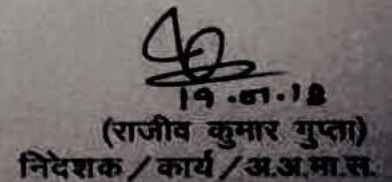 19.01.18
(राजीव कुमार गुप्ता)
निदेशक / कार्य / अ.अ.मा.सं.